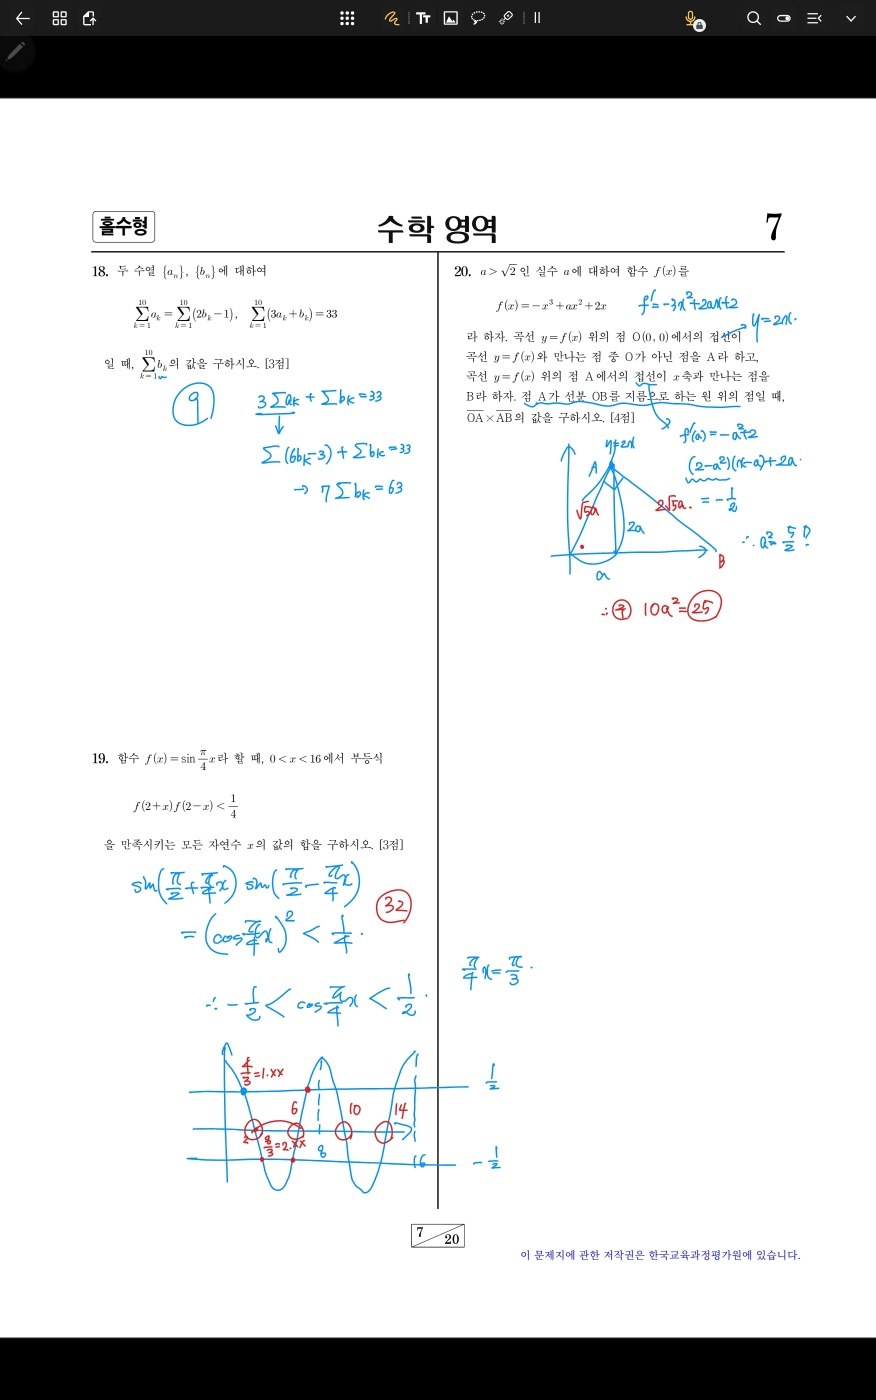 홀수형
수학 영역
7
18. 두 수열 {aₙ}, {bₙ}에 대하여
∑_{k=1}^{10} aₖ = ∑_{k=1}^{10} (2bₖ−1), ∑_{k=1}^{10} (3aₖ+bₖ) = 33
일 때, ∑_{k=1}^{10} bₖ의 값을 구하시오. [3점]
9
3∑aₖ + ∑bₖ = 33
∑(6bₖ−3) + ∑bₖ = 33
→ 7∑bₖ = 63
19. 함수 f(x) = sin π/4 x라 할 때, 0<x<16에서 부등식
f(2+x)f(2−x) < 1/4
을 만족시키는 모든 자연수 x의 값의 합을 구하시오. [3점]
sin(π/2 + π/4 x) sin(π/2 − π/4 x)
32
= (cos π/4 x)² < 1/4.
∴ −1/2 < cos π/4 x < 1/2.
π/4 x = π/3.
4/3 = 1.xx
1/2
6
10
14
2
8/3 = 2.xx
8
16
−1/2
20. a>√2 인 실수 a에 대하여 함수 f(x)를
f(x) = −x³+ax²+2x
f' = −3x²+2ax+2
라 하자. 곡선 y=f(x) 위의 점 O(0, 0)에서의 접선이
y=2x.
곡선 y=f(x)와 만나는 점 중 O가 아닌 점을 A라 하고,
곡선 y=f(x) 위의 점 A에서의 접선이 x축과 만나는 점을
B라 하자. 점 A가 선분 OB를 지름으로 하는 원 위의 점일 때,
OA×AB의 값을 구하시오. [4점]
y=2x
f'(a) = −a²+2
A
(2−a²)(x−a)+2a.
= −1/2
√5a
2√5a.
2a
∴ a² = 5/2 !
B
a
10a² = 25
7
20
이 문제지에 관한 저작권은 한국교육과정평가원에 있습니다.